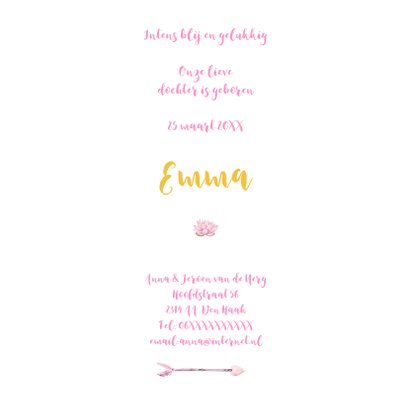 Intens blij en gelukkig
Onze lieve
dochter is geboren
25 maart 20XX
Emma
Anna & Jeroen van de Werg
Hoofdstraat 56
2514 AA Den Haak
Tel: 06XXXXXXXXXX
email:anna@internet.nl